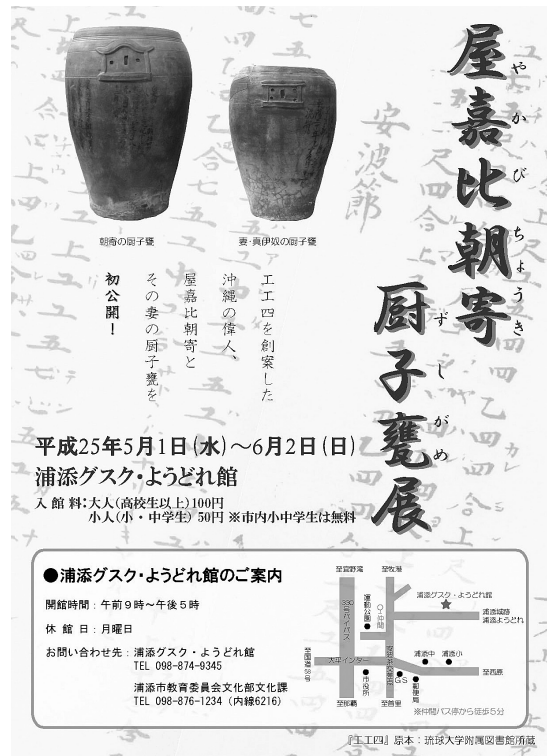 屋嘉比朝寄
やかびちょうき
厨子甕展
ずしがめ
安波節
朝寄の厨子甕
妻・真伊奴の厨子甕
工工四を創案した
沖縄の偉人、
屋嘉比朝寄と
その妻の厨子甕を
初公開！
平成25年5月1日(水)～6月2日(日)
浦添グスク・ようどれ館
入 館 料：大人(高校生以上)100円
小人(小・中学生) 50円 ※市内小中学生は無料
●浦添グスク・ようどれ館のご案内
開館時間：午前９時～午後５時
休 館 日：月曜日
お問い合わせ先：浦添グスク・ようどれ館
TEL 098-874-9345
浦添市教育委員会文化部文化課
TEL 098-876-1234（内線6216）
至宜野湾
至牧港
330号バイパス
運動公園
仲間
浦添グスク・ようどれ館
浦添城跡
浦添ようどれ
至国道58号
大平インター
浦添中
浦添小
至西原
市役所
GS
郵便局
至那覇
至首里
※仲間バス停から徒歩５分
『工工四』原本：琉球大学附属図書館所蔵